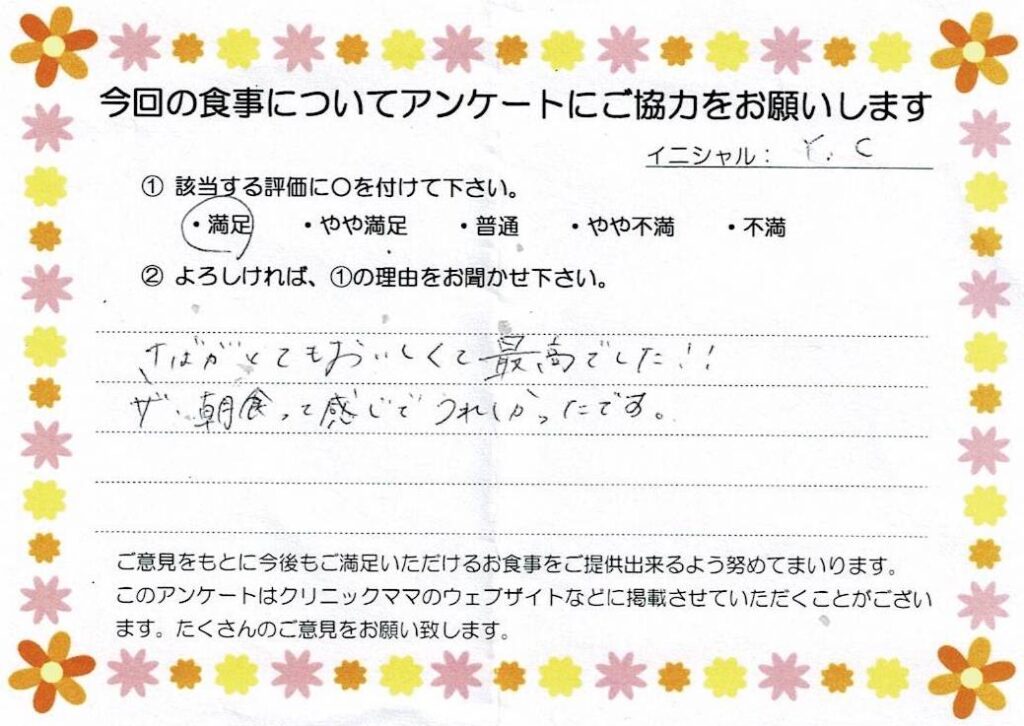 今回の食事についてアンケートにご協力をお願いします
イニシャル： Y. C
① 該当する評価に〇を付けて下さい。
・満足 ・やや満足 ・普通 ・やや不満 ・不満
② よろしければ、①の理由をお聞かせ下さい。
さばがとてもおいしくて最高でした!!
ザ・朝食って感じでうれしかったです。
ご意見をもとに今後もご満足いただけるお食事をご提供出来るよう努めてまいります。
このアンケートはクリニックママのウェブサイトなどに掲載させていただくことがござい
ます。たくさんのご意見をお願い致します。